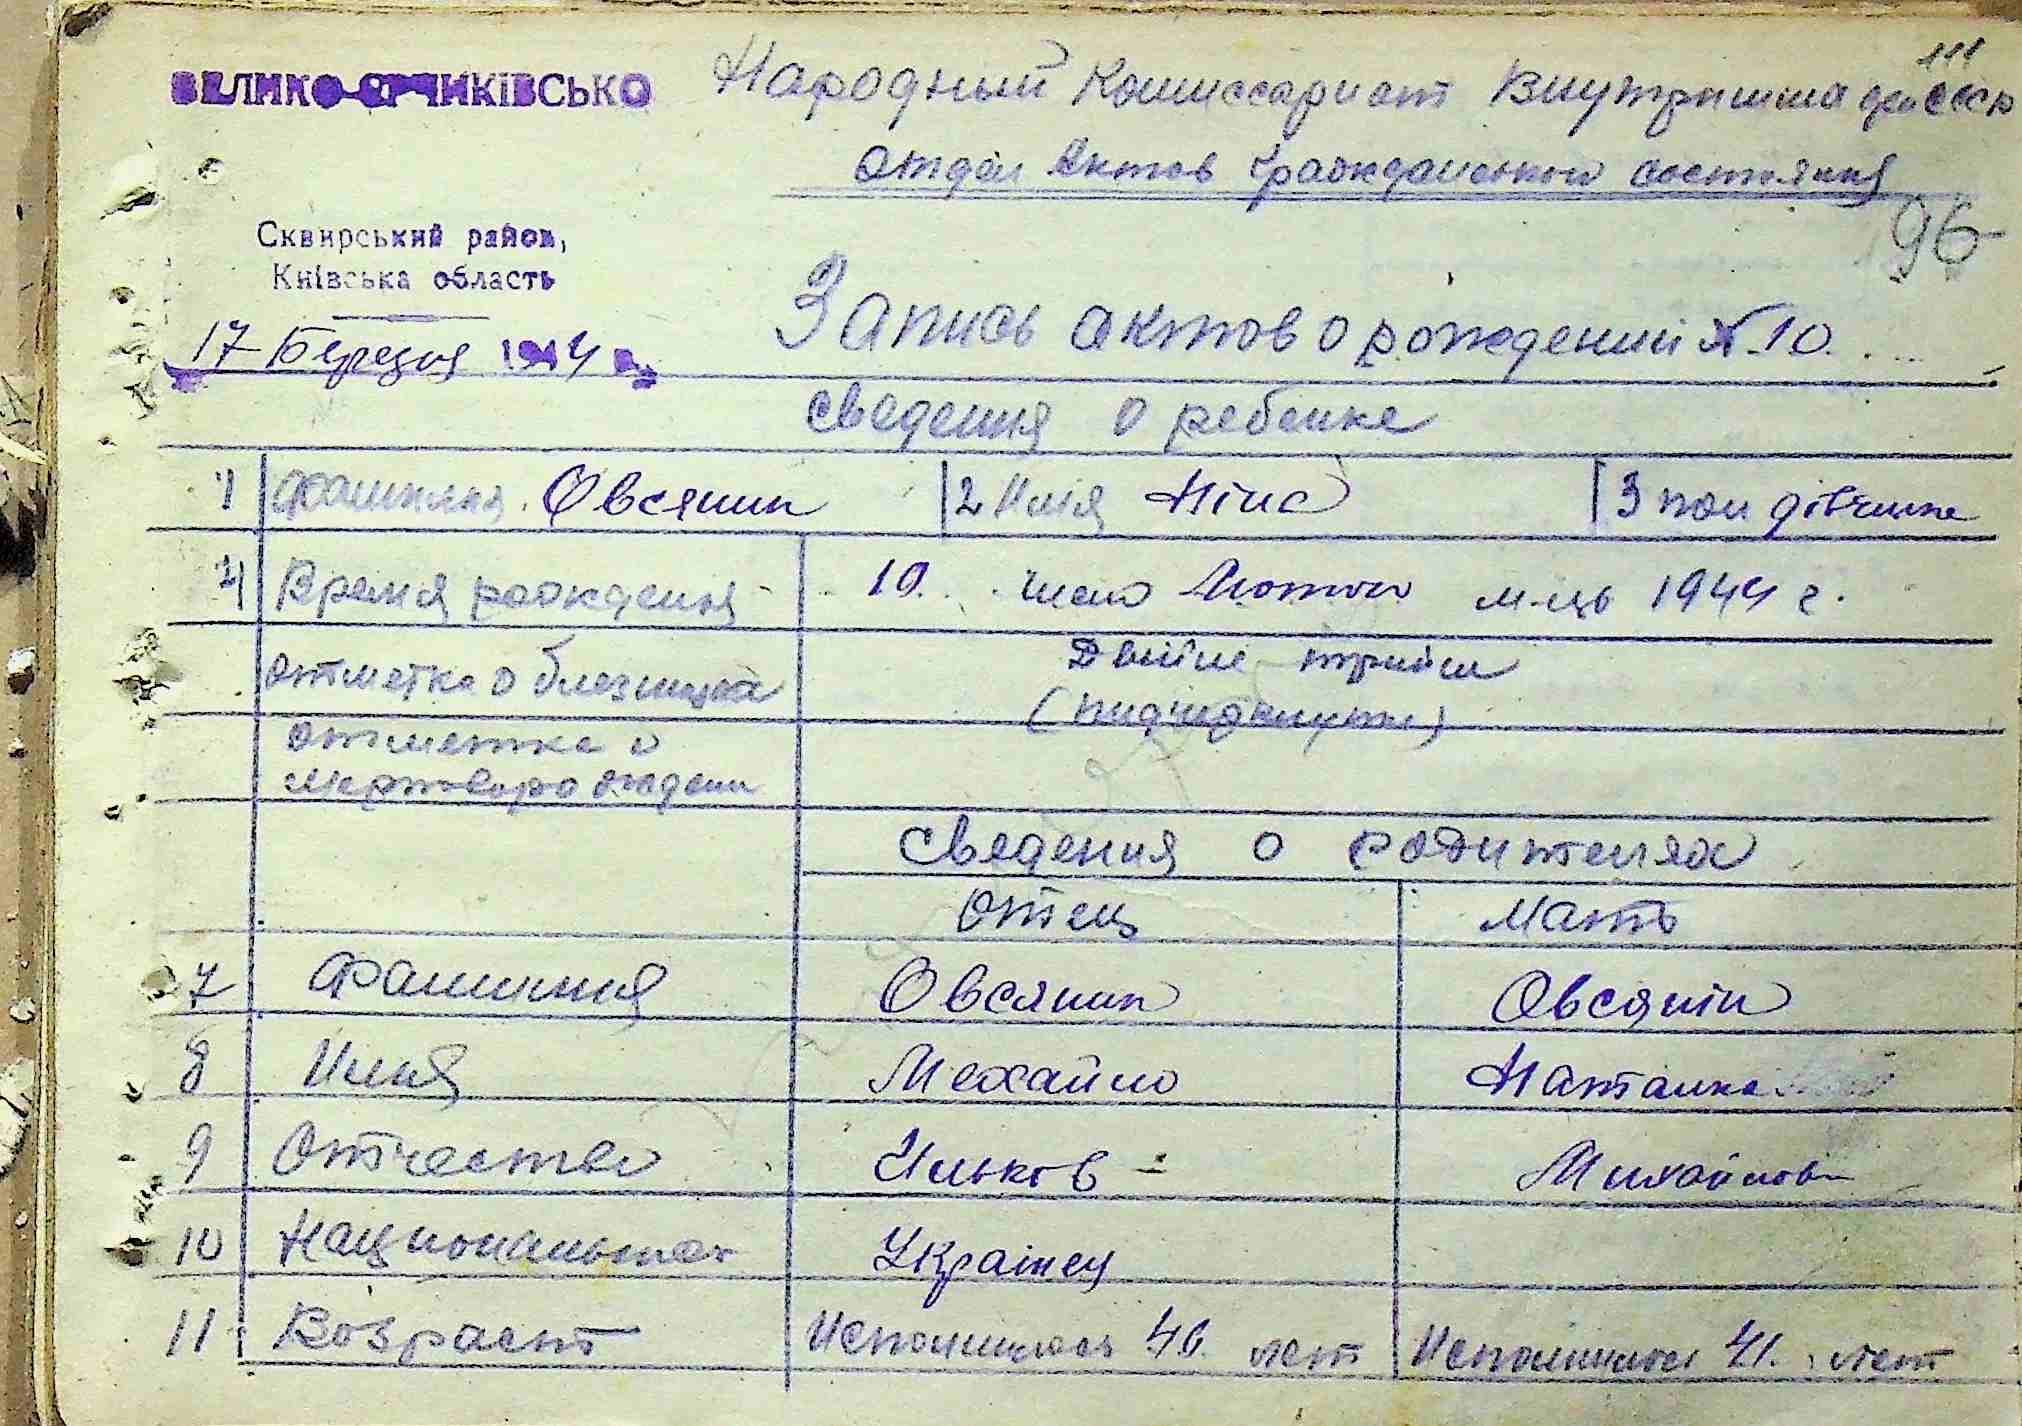 111
ВЕЛИКО-ЄРЧИКІВСЬКО
Народный Комиссариат Внутришна дел СССР
отдел Актов Гражданского состояния
96
Сквирський район,
Київська область
17 Березня 1944 р.
Запись актов о рождении № 10
сведения о ребенке
1 Фамилия Овсяник 2 Имя Ніна 3 пол дівчинка
4 Время рождения 10. число Лютого м-ць 1944 г.
отметка о близнецах Двійне трійни
(підчеркнути)
отметка о
мертворождени
Сведения о родителях
Отец Мать
7 Фамилия Овсяник Овсянік
8 Имя Мехайло Наталка
9 Отчество Ильков - Михайлов-
10 Националност Українец
11 Возраст Исполнилось 46. лет Исполнилось 41. лет